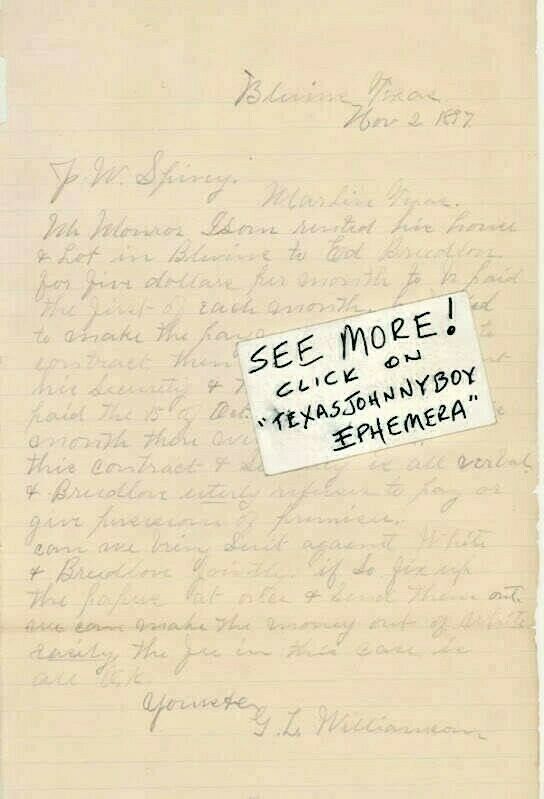 Blevins Texas
Nov 2 1897
J. W. Spivey.
Marlin Texas.
Mr Monroe Isom rented his house
& Lot in Blevins to Ed Breedlove
for five dollars per month to be paid
the first of each month
to make the pay
contract then
his security &
paid the 15 of Oct
month there
this contract & is all verbal
& Breedlove utterly refuses to pay or
give possession of premises.
can we bring Suit against White
& Breedlove jointly. if So fix up
the papers at once & Send them out.
we can make the money out of White
easily the fee in this case is
all O.K.
Yours &c
G. L. Williamson
SEE MORE!
CLICK ON
"TEXASJOHNNYBOY
EPHEMERA"